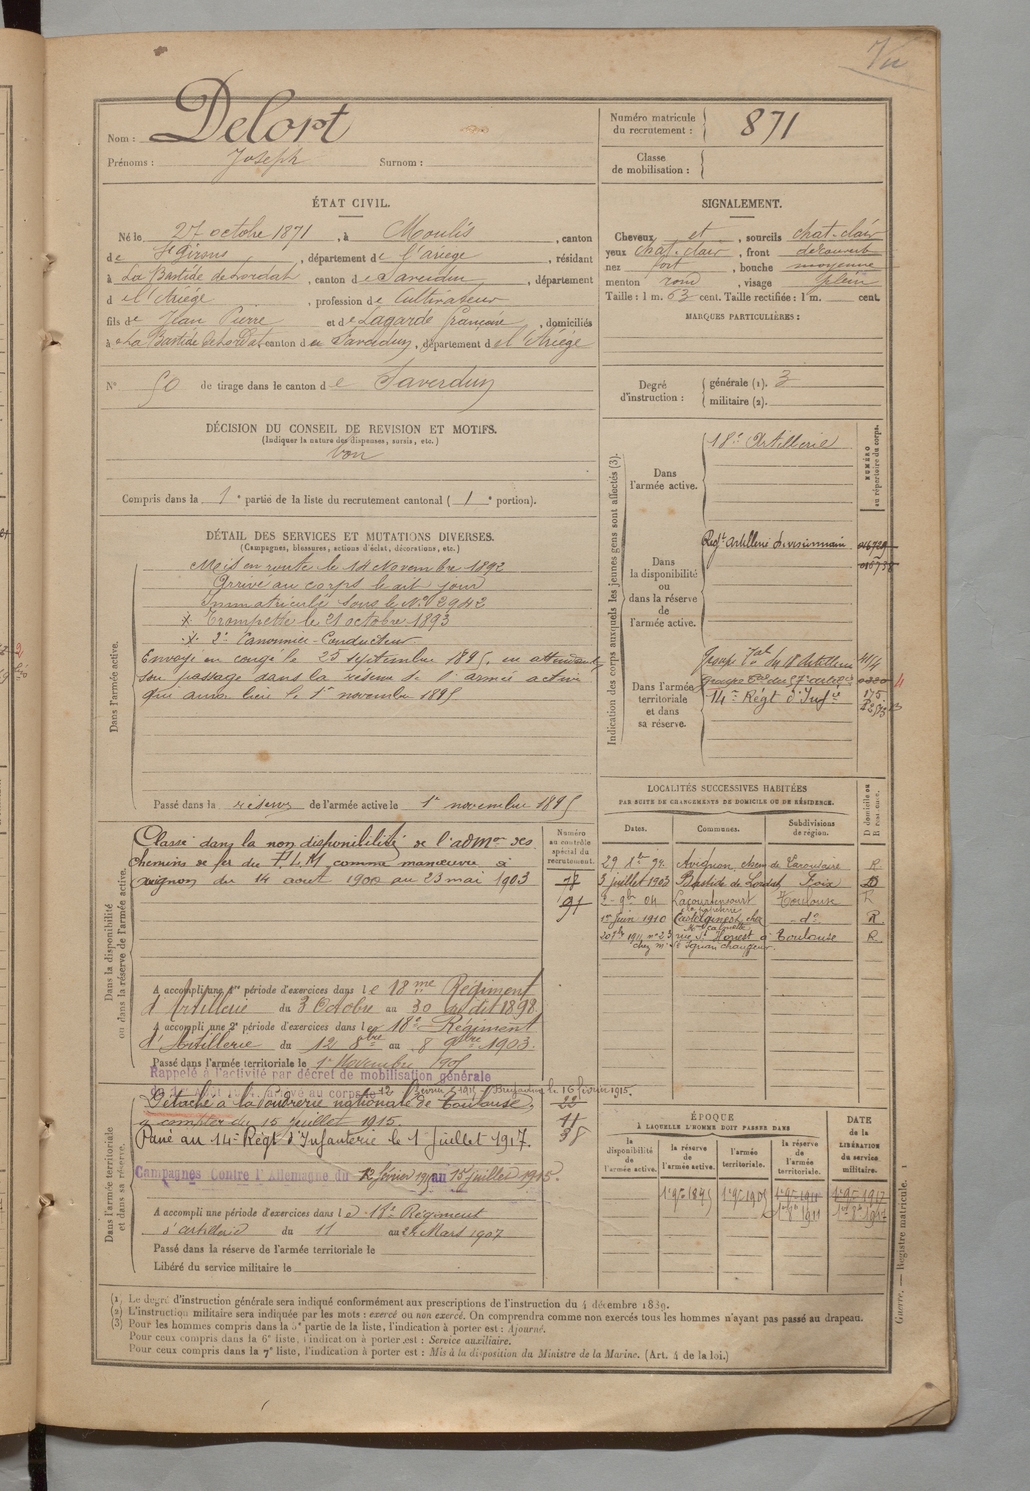 Vu
Nom : Delort
Prénoms : Joseph Surnom :
Numéro matricule du recrutement : 871
Classe de mobilisation :
ÉTAT CIVIL.
Né le 27 octobre 1871, à Moulis, canton
de St Girons, département de l'ariège, résidant
à La Bastide de Lordat, canton de Saverdun, département
d el'Ariège, profession de Cultivateur
fils de Jean Pierre et de Lagarde françoise, domiciliés
à La Bastide de Lordat canton de Saverdun, département de l'Ariège
N° 50 de tirage dans le canton de Saverdun
SIGNALEMENT.
Cheveux et, sourcils chat-clair
yeux chat-clair, front découvert
nez fort, bouche moyenne
menton rond, visage plein
Taille : 1 m. 63 cent. Taille rectifiée : 1 m. cent.
MARQUES PARTICULIÈRES :
Degré d'instruction : générale (1). 3
militaire (2).
DÉCISION DU CONSEIL DE REVISION ET MOTIFS.
(Indiquer la nature des dispenses, sursis, etc.)
bon
Compris dans la 1e partie de la liste du recrutement cantonal ( 1e portion).
DÉTAIL DES SERVICES ET MUTATIONS DIVERSES.
(Campagnes, blessures, actions d'éclat, décorations, etc.)
Dans l'armée active.
Mis en route le 14 Novembre 1892
Arrivé au corps le dit jour
Immatriculé sous le N° 2942
Trompette le 21 octobre 1893
2e Canonnier-Conducteur
Envoyé en congé le 25 septembre 1895, en attendant
son passage dans la réserve de l'armée active
qui aura lieu le 1er novembre 1895
Passé dans la réserve de l'armée active le 1er novembre 1895
Indication des corps auxquels les jeunes gens sont affectés (3).
NUMÉRO au répertoire du corps.
Dans l'armée active.
18e Artillerie
Dans la disponibilité ou dans la réserve de l'armée active.
Regt artillerie divisionnaire
Dans l'armée territoriale et dans sa réserve.
Group Tal du 18 Artillerie 414
14e Régt d'Infie 175
Dans la disponibilité ou dans la réserve de l'armée active.
Classé dans la non disponibilité de l'admon des
chemins de fer du PLM comme manœuvre à
avignon du 14 août 1900 au 23 mai 1903
Numéro au contrôle spécial du recrutement.
91
A accompli une 1re période d'exercices dans le 18me Régiment
d'Artillerie du 3 Octobre au 30 du dit 1898.
A accompli une 2e période d'exercices dans le 18e Régiment
d'Artillerie du 12 8bre au 8 9bre 1903.
Passé dans l'armée territoriale le 1er Novembre 1905
LOCALITÉS SUCCESSIVES HABITÉES
PAR SUITE DE CHANGEMENTS DE DOMICILE OU DE RÉSIDENCE.
Dates. Communes. Subdivisions de région. D domicile ou R résidence.
Avignon R
3 juillet 1903 Bastide de Lordat Foix D
Lacourtensourt Toulouse R
1er Juin 1910 Castelginest chez -do- R
à Toulouse R
Dans l'armée territoriale et dans sa réserve.
Rappelé à l'activité par décret de mobilisation générale
le 16 février 1915.
Détaché à la Poudrerie nationale de Toulouse,
à compter du 15 juillet 1915.
Passé au 14e Régt d'Infanterie le 1 Juillet 1917.
Campagnes Contre l'Allemagne du 12 février 1915 au 15 juillet 1915.
38
A accompli une période d'exercices dans le 18e Régiment
d'artillerie du 11 au 24 Mars 1907
Passé dans la réserve de l'armée territoriale le
Libéré du service militaire le
ÉPOQUE
À LAQUELLE L'HOMME DOIT PASSER DANS
la disponibilité de l'armée active. la réserve de l'armée active. l'armée territoriale. la réserve de l'armée territoriale.
DATE de la LIBÉRATION du service militaire.
1er 9bre 1895 1er 9bre 1905 1er 9bre 1911 1er 9bre 1917
(1) Le degré d'instruction générale sera indiqué conformément aux prescriptions de l'instruction du 4 décembre 1889.
(2) L'instruction militaire sera indiquée par les mots : exercé ou non exercé. On comprendra comme non exercés tous les hommes n'ayant pas passé au drapeau.
(3) Pour les hommes compris dans la 5e partie de la liste, l'indication à porter est : Ajourné.
Pour ceux compris dans la 6e liste, l'indication à porter est : Service auxiliaire.
Pour ceux compris dans la 7e liste, l'indication à porter est : Mis à la disposition du Ministre de la Marine. (Art. 4 de la loi.)
Guerre. — Registre matricule. 1